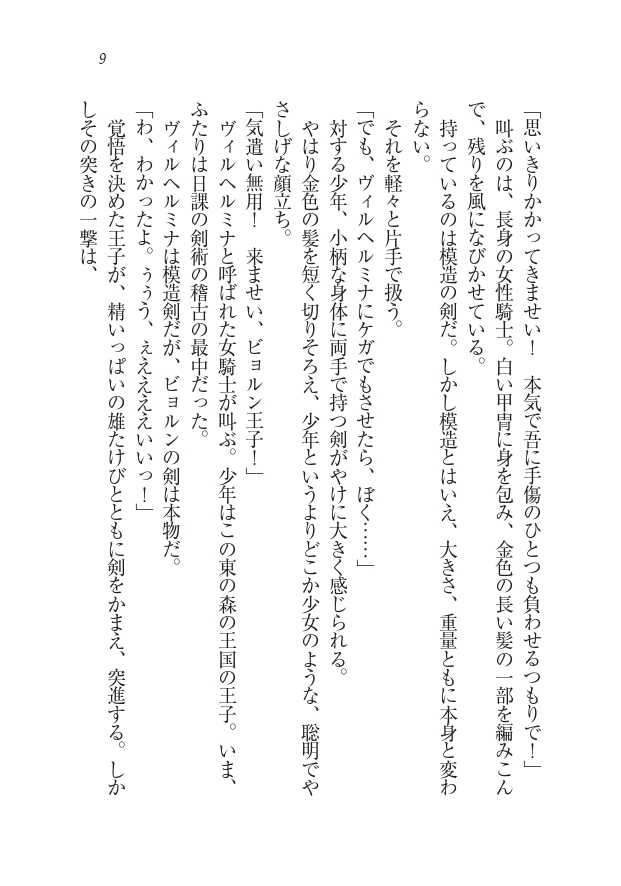 9
「思いきりかかってきませい！　本気で吾に手傷のひとつも負わせるつもりで！」
　叫ぶのは、長身の女性騎士。白い甲冑に身を包み、金色の長い髪の一部を編みこん
で、残りを風になびかせている。
　持っているのは模造の剣だ。しかし模造とはいえ、大きさ、重量ともに本身と変わ
らない。
　それを軽々と片手で扱う。
「でも、ヴィルヘルミナにケガでもさせたら、ぼく……」
　対する少年、小柄な身体に両手で持つ剣がやけに大きく感じられる。
　やはり金色の髪を短く切りそろえ、少年というよりどこか少女のような、聡明でや
さしげな顔立ち。
「気遣い無用！　来ませい、ビョルン王子！」
　ヴィルヘルミナと呼ばれた女騎士が叫ぶ。少年はこの東の森の王国の王子。いま、
ふたりは日課の剣術の稽古の最中だった。
　ヴィルヘルミナは模造剣だが、ビョルンの剣は本物だ。
「わ、わかったよ。ぅぅう、ぇえええいいっ！」
　覚悟を決めた王子が、精いっぱいの雄たけびとともに剣をかまえ、突進する。しか
しその突きの一撃は、